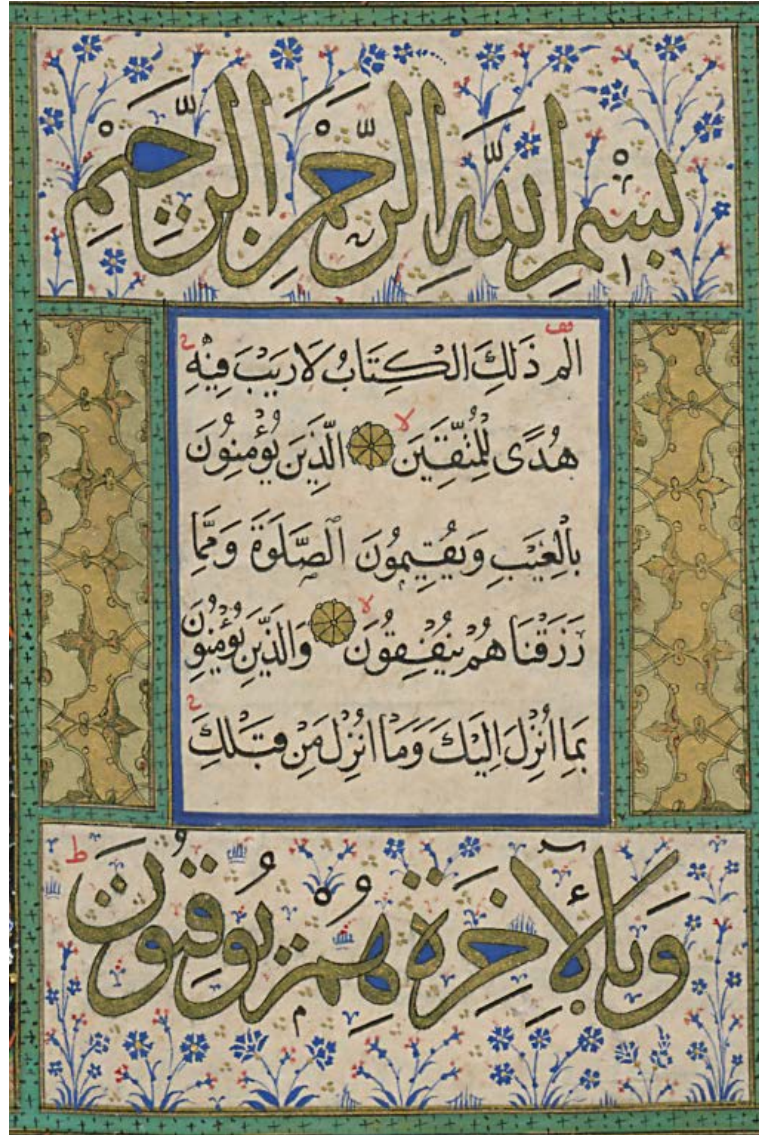 بِسْمِ اللَّهِ الرَّحْمَنِ الرَّحِيمِ
الم ذَلِكَ الْكِتَابُ لَا رَيْبَ فِيْهِ
هُدًى لِلْمُتَّقِينَ الَّذِينَ يُؤْمِنُونَ
بِالْغَيْبِ وَيُقِيمُونَ الصَّلَوةَ وَمِمَّا
رَزَقْنَاهُمْ يُنْفِقُونَ وَالَّذِينَ يُؤْمِنُونَ
بِمَا اُنْزِلَ اِلَيْكَ وَمَا اُنْزِلَ مِنْ قَبْلِكَ
وَبِالْأٓخِرَةِ هُمْ يُوقِنُونَ